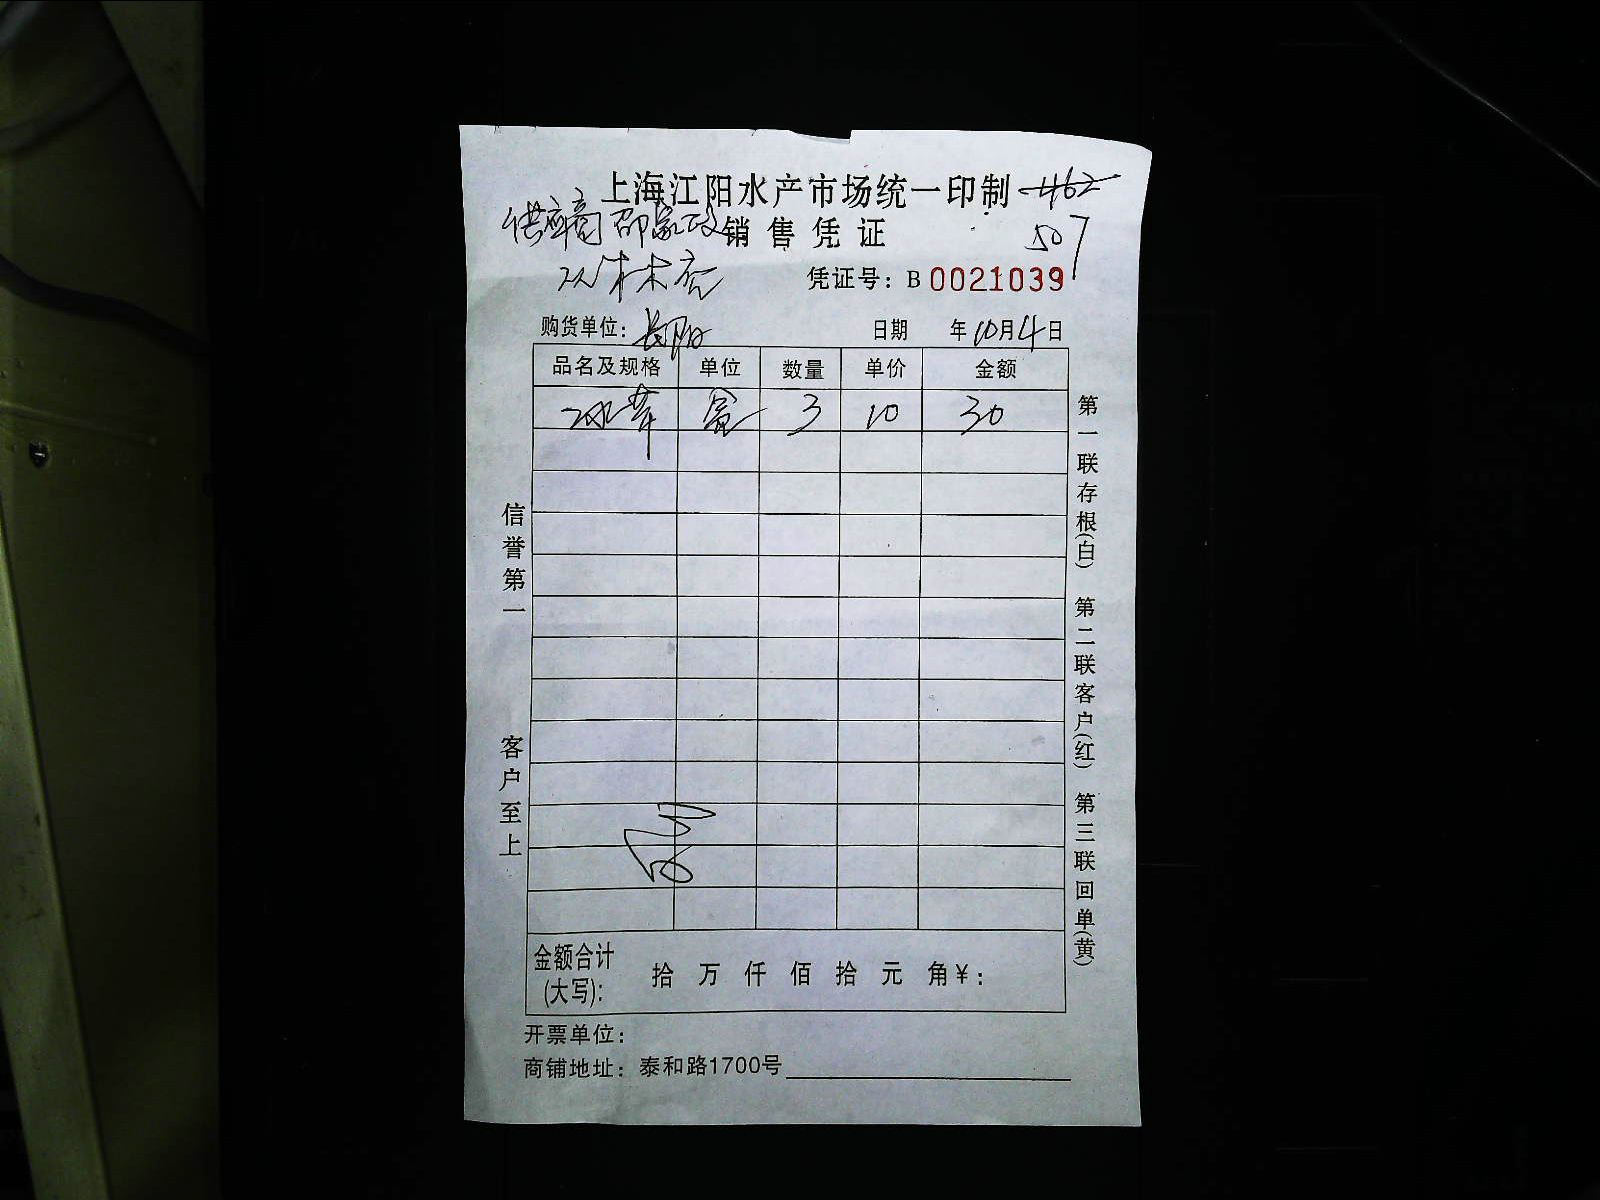 上海江阳水产市场统一印制 462
供应商 邵家政 销售凭证 507
凭证号：B 0021039
购货单位：长阳 日期 年10月4日
品名及规格 单位 数量 单价 金额
3 10 30
信誉第一 客户至上
第一联存根(白) 第二联客户(红) 第三联回单(黄)
金额合计
(大写)： 拾 万 仟 佰 拾 元 角¥：
开票单位：
商铺地址：泰和路1700号